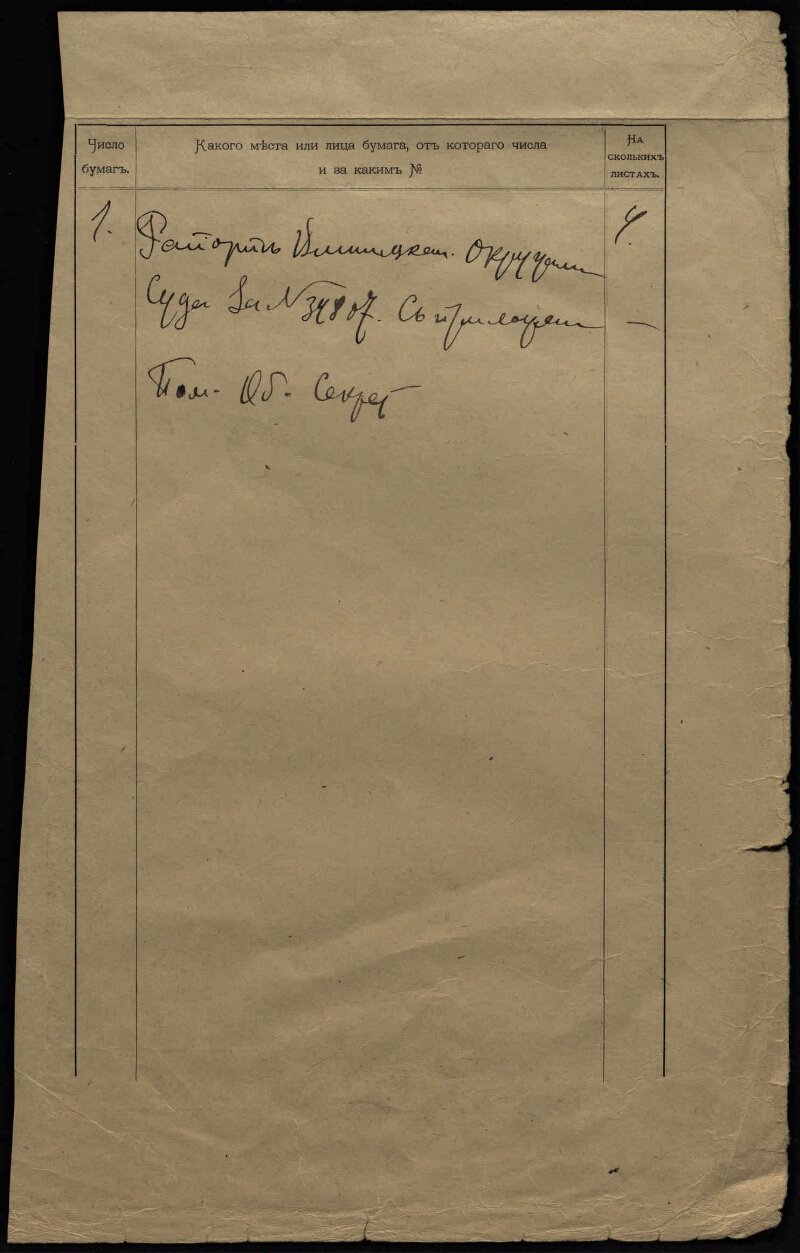 Число бумагъ.
Какого мѣста или лица бумага, отъ котораго числа
и за какимъ №
На сколькихъ листахъ.
1. Рапортъ Винницкаго Окружн 4.
Суда за № 34807. Съ прилож —
Пом. Об. Секрет